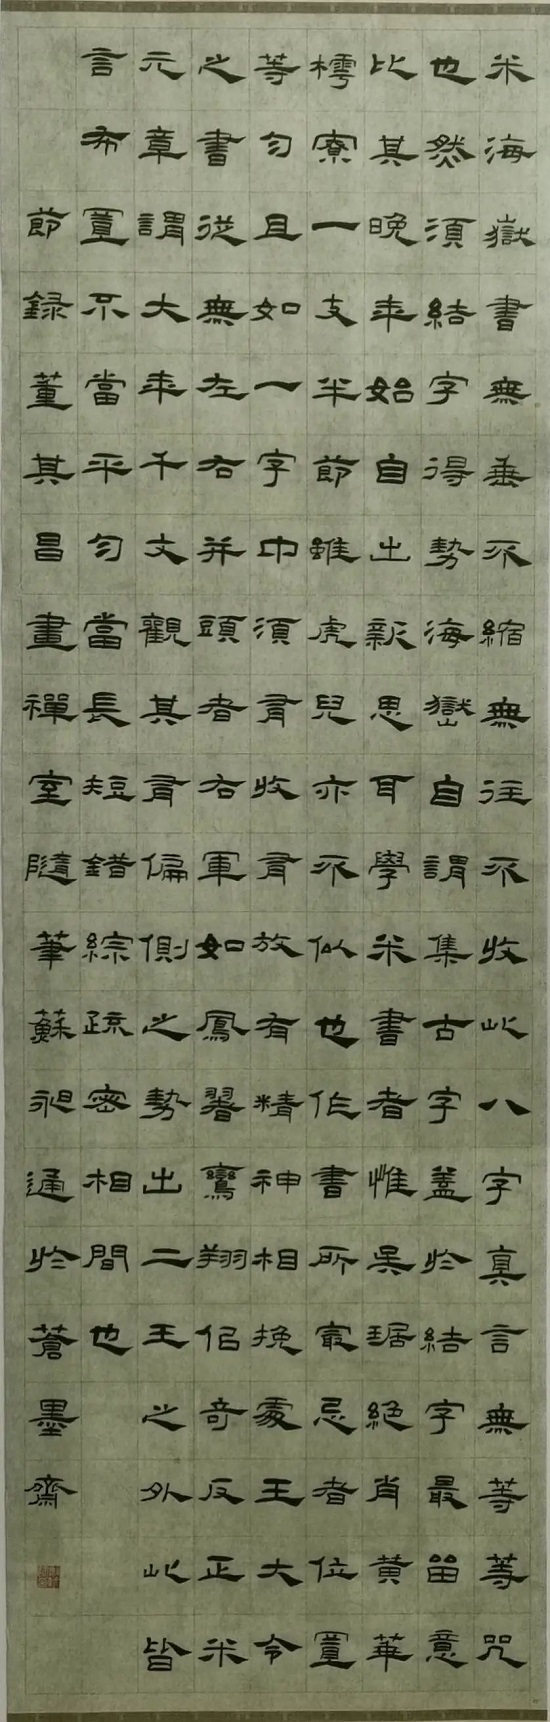 米海嶽書無垂不縮無往不收此八字真言無等等咒
也然須結字得勢海嶽自謂集古字蓋於結字最留意
比其晚年始自出新思耳學米書者惟吳琚絕肖黃華
樗寮一支半節雖虎兒亦不似也作書所最忌者位置
等勻且如一字中須有收有放有精神相挽處王大令
之書從無左右并頭者右軍如鳳翥鸞翔佀奇反正米
元章謂大年千文觀其有偏側之勢出二王之外此皆
言布置不當平勻當長短錯綜疏密相間也
節録董其昌畫禪室隨筆蘇昶通於蒼墨齋